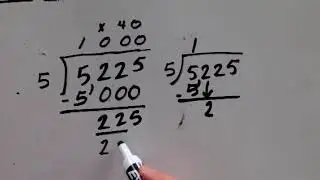 x 40
1000
5 5225
-5,000
225
2
1
5 5225
-5↓
2